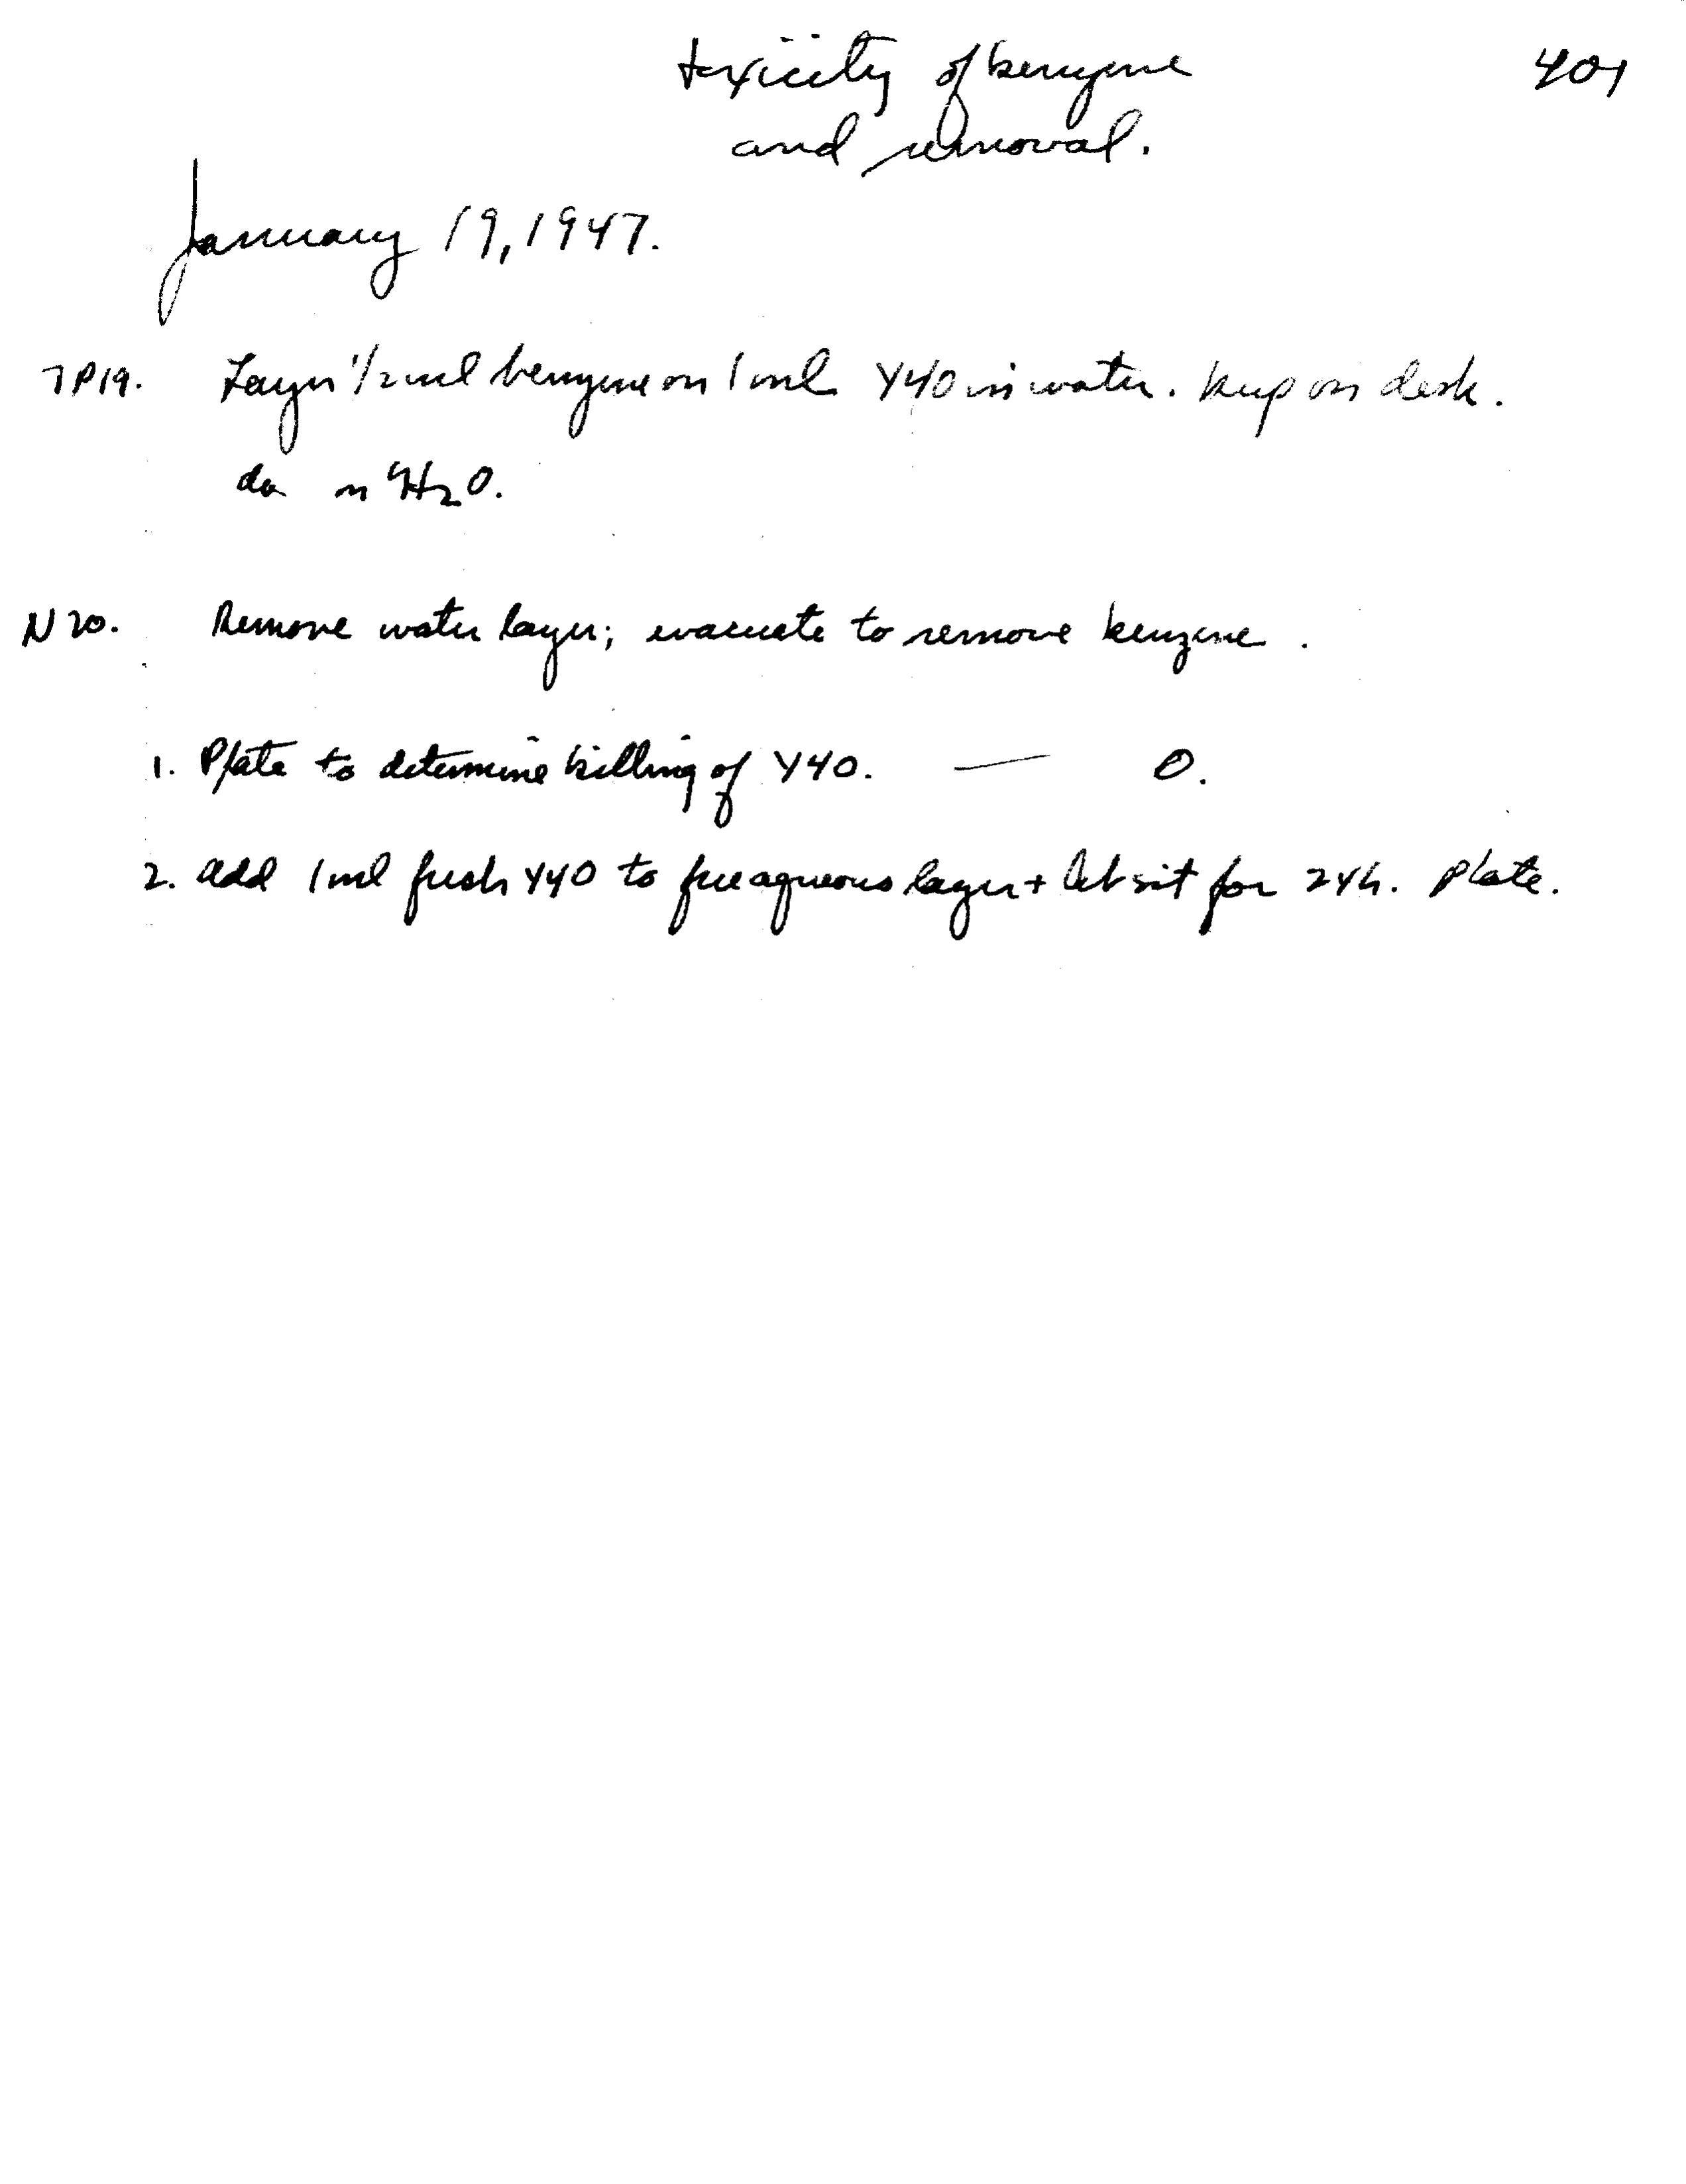 toxicity of benzene 401
and removal.
January 19, 1947.
7P19. Layer 1/2 ml benzene on 1 ml Y40 in water. Keep on desk.
do n H2O.
N20. Remove water layer; evacuate to remove benzene.
1. Plate to determine killing of Y40. — 0.
2. Add 1 ml fresh Y40 to free aqueous layer + let sit for 24h. Plate.